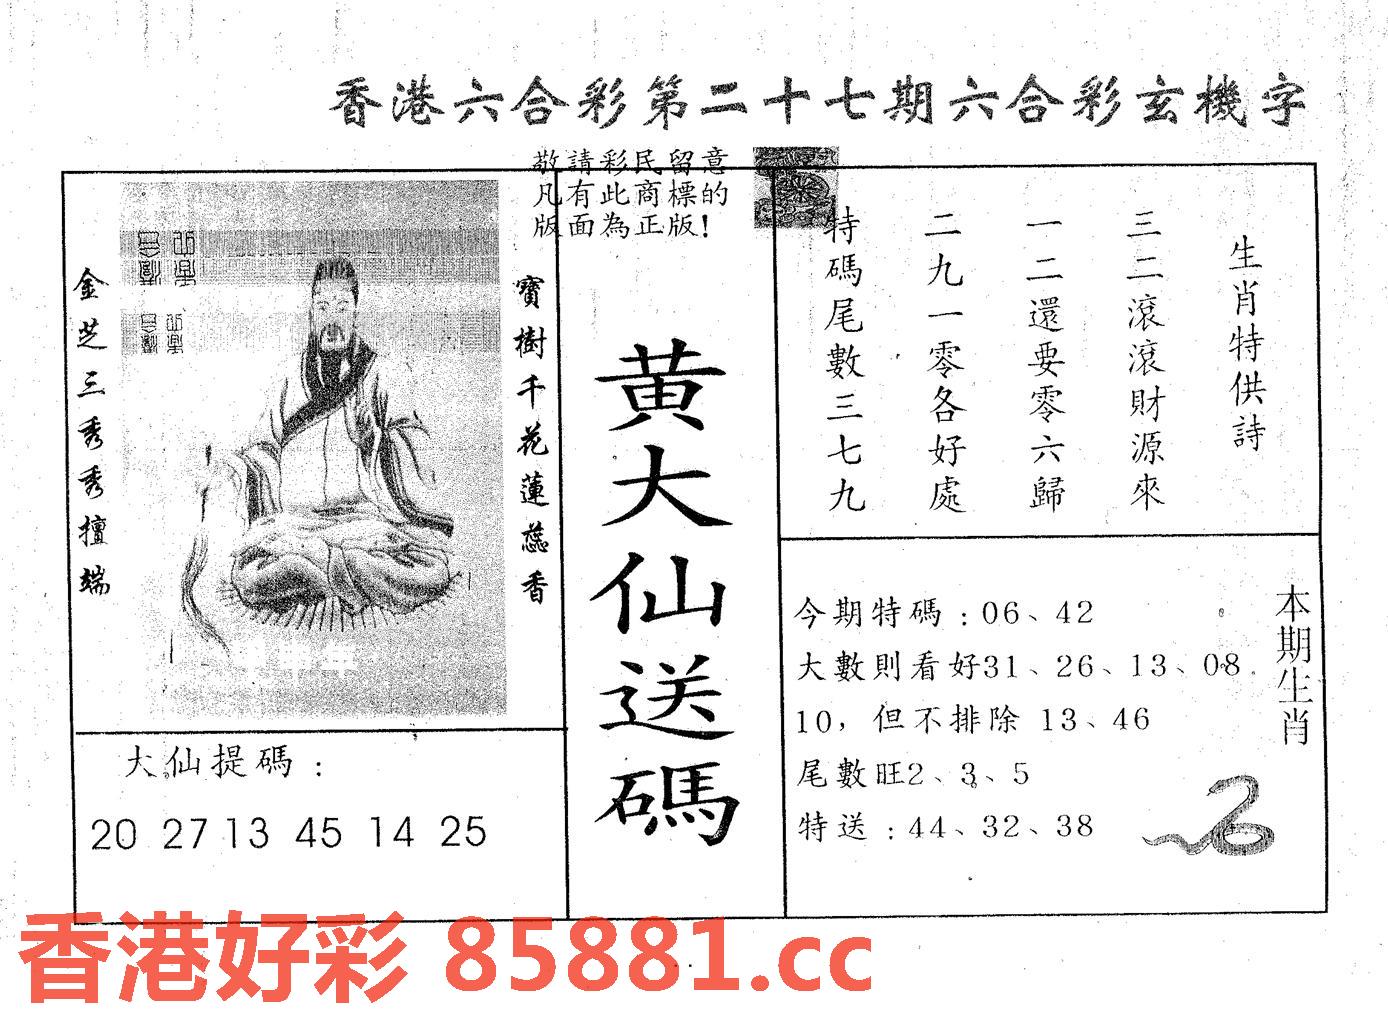 香港六合彩第二十七期六合彩玄機字
敬請彩民留意
凡有此商標的
版面為正版!
生肖特供詩
三二滾滾財源來
一二還要零六歸
二九一零各好處
特碼尾數三七九
寶樹千花蓮蕊香
金芝三秀秀擅端
黃大仙送碼
大仙提碼：
20 27 13 45 14 25
本期生肖
今期特碼：06、42
大數則看好31、26、13、08
10，但不排除 13、46
尾數旺2、3、5
特送：44、32、38
香港好彩 85881.cc